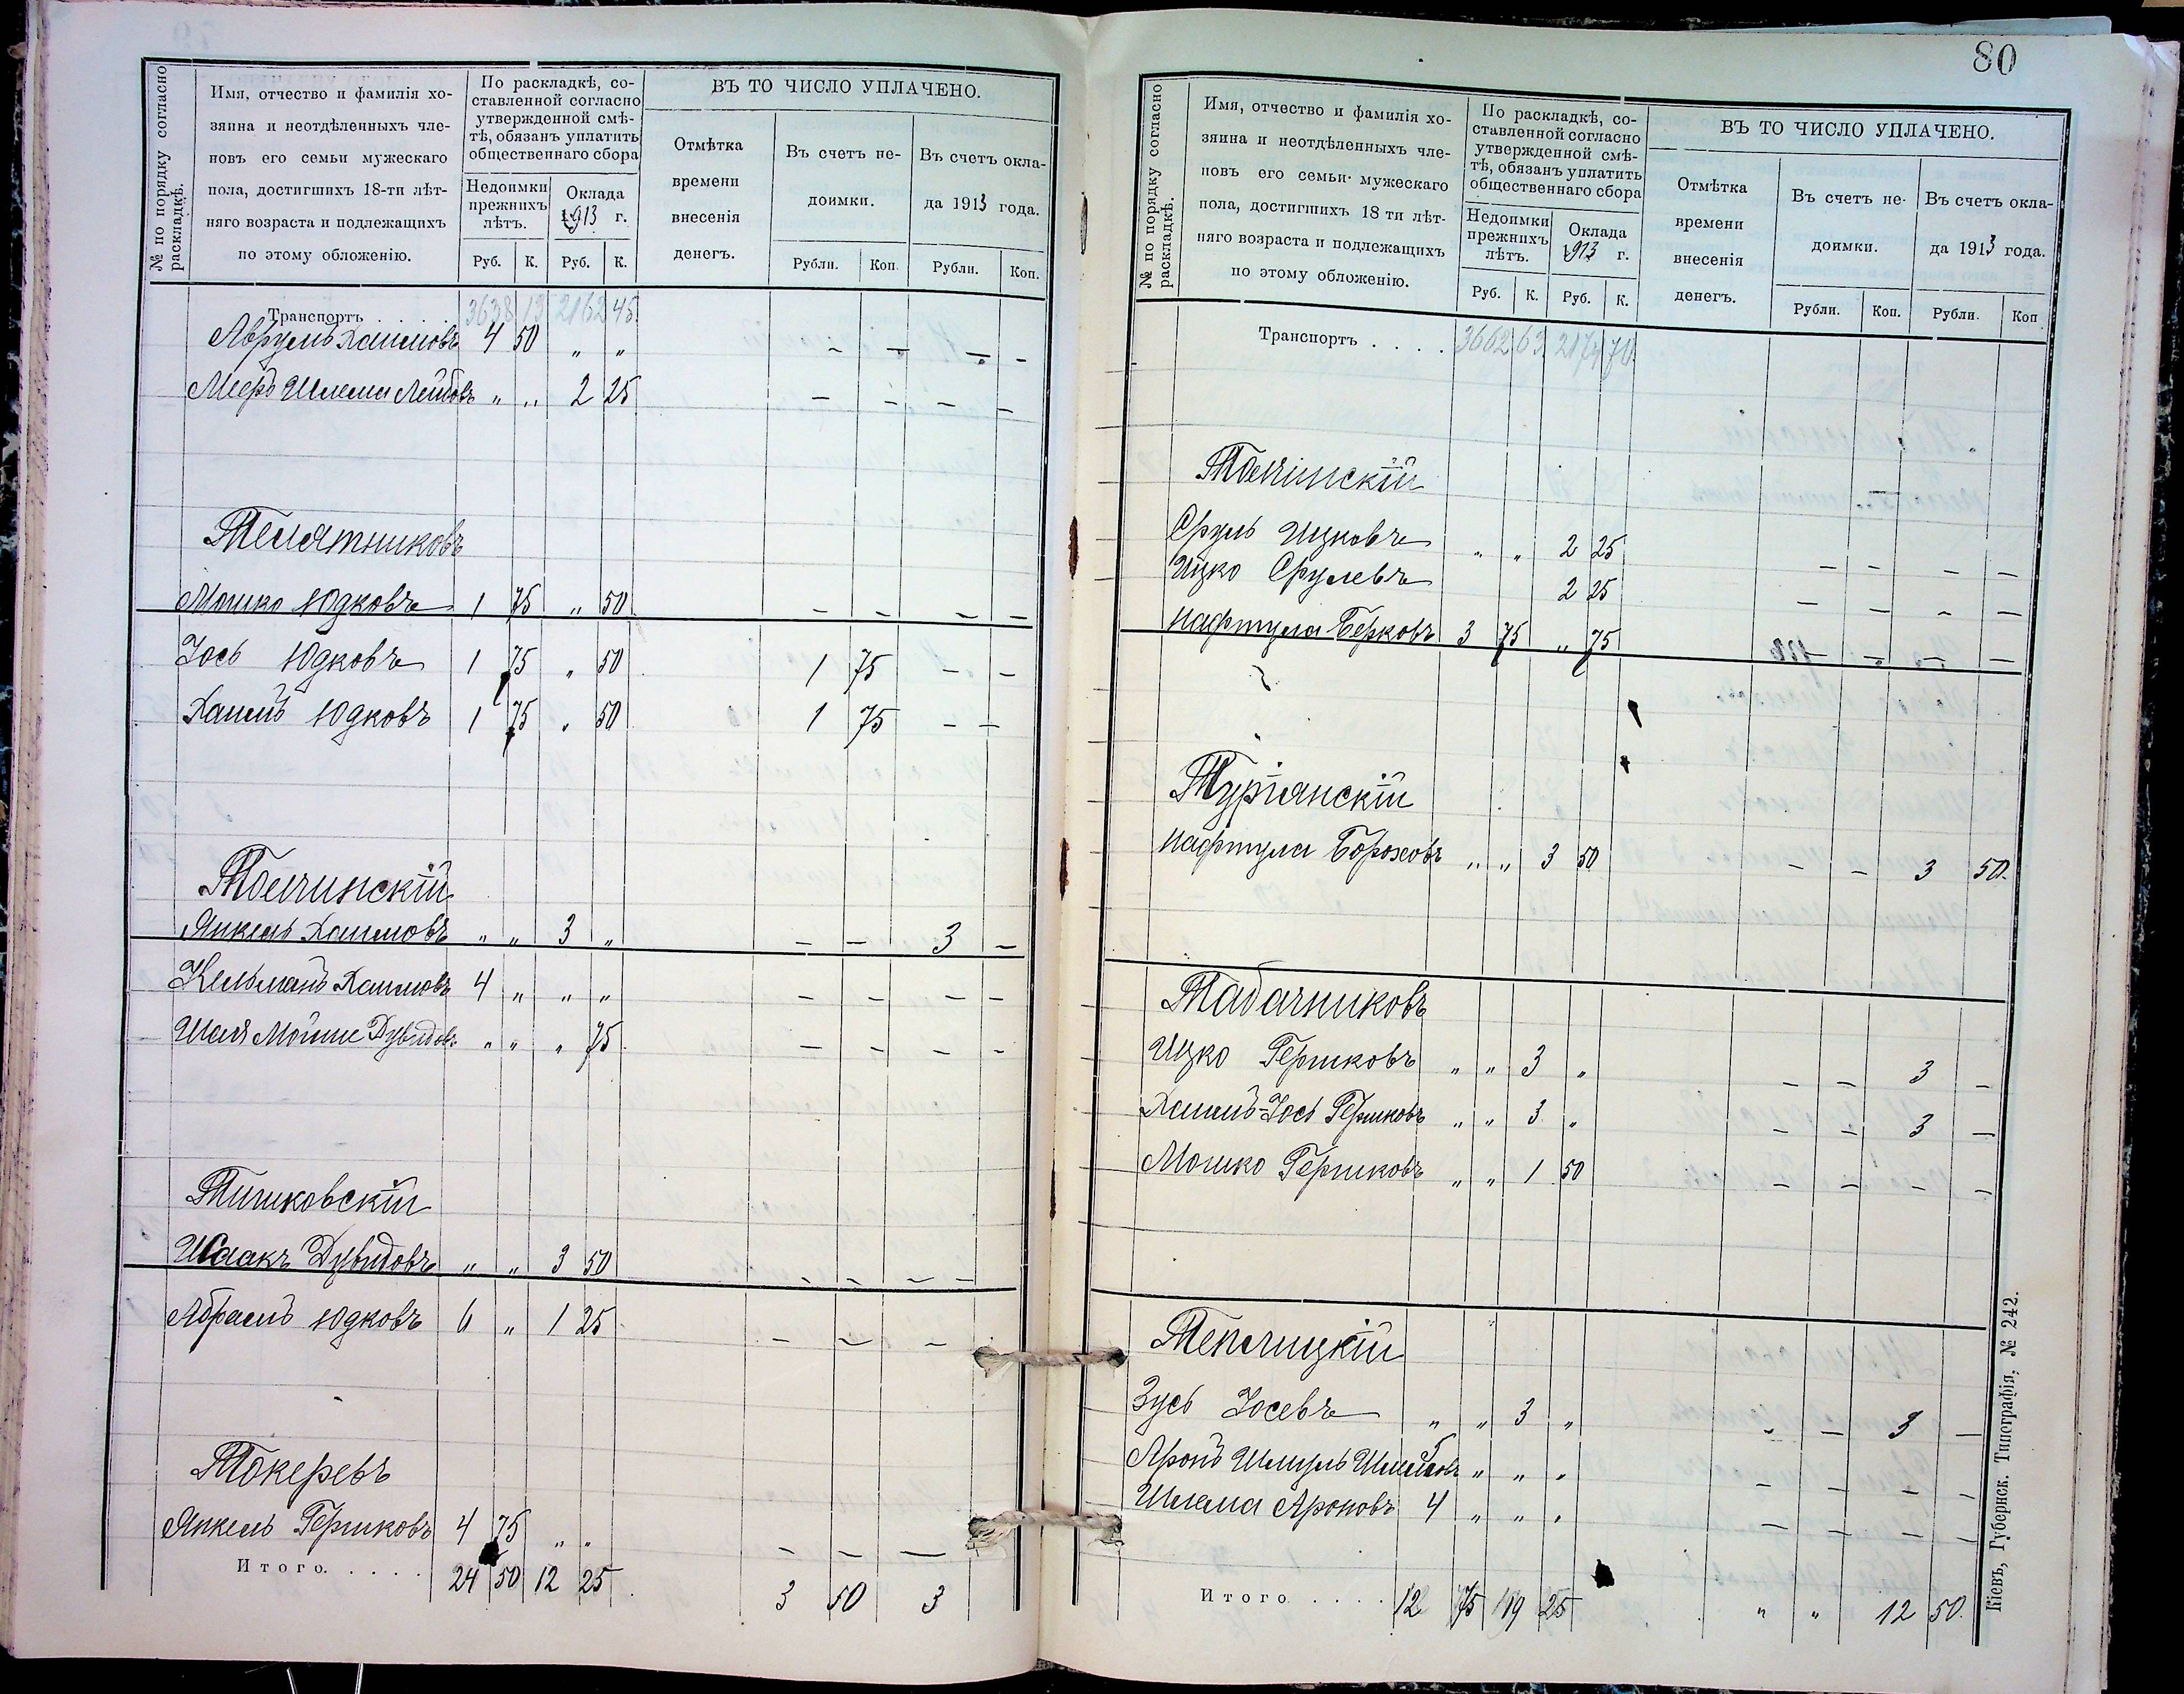 № по порядку согласно раскладкѣ.
Имя, отчество и фамилія хо-
зяина и неотдѣленныхъ чле-
новъ его семьи мужескаго
пола, достигшихъ 18-ти лѣт-
няго возраста и подлежащихъ
по этому обложенію.
По раскладкѣ, со-
ставленной согласно
утвержденной смѣ-
тѣ, обязанъ уплатить
общественнаго сбора
Недоимки прежнихъ лѣтъ.
Оклада 1913 г.
Руб. К. Руб. К.
ВЪ ТО ЧИСЛО УПЛАЧЕНО.
Отмѣтка времени внесенія денегъ.
Въ счетъ не-доимки.
Въ счетъ окла-да 1913 года.
Рубли. Коп. Рубли. Коп.
Транспортъ . . . . 3638 13 2162 45
Аврумъ Хаимовъ 4 50 „ „ – – – –
Мееръ Шлема Лейбовъ „ „ 2 25 – – – –
Телятниковъ
Мошко Юдковъ 1 75 „ 50 – – – –
Іось Юдковъ 1 75 „ 50 1 75 – –
Хаимъ Юдковъ 1 75 „ 50 1 75 – –
Толчинскій
Янкель Хаимовъ „ „ 3 „ – – 3 –
Кельманъ Хаимовъ 4 „ „ „ – – – –
Шая Мойше Дувидов. „ „ „ 75 – – – –
Тишковскій
Исаакъ Дувидовъ „ „ 3 50 – – – –
Абрамъ Юдковъ 6 „ 1 25 – – –
Токеревъ
Янкель Гершковъ 4 75 „ „ – – –
Итого. . . . . 24 50 12 25 3 50 3
80
№ по порядку согласно раскладкѣ.
Имя, отчество и фамилія хо-
зяина и неотдѣленныхъ чле-
новъ его семьи мужескаго
пола, достигшихъ 18 ти лѣт-
няго возраста и подлежащихъ
по этому обложенію.
По раскладкѣ, со-
ставленной согласно
утвержденной смѣ-
тѣ, обязанъ уплатить
общественнаго сбора
Недоимки прежнихъ лѣтъ.
Оклада 1913 г.
Руб. К. Руб. К.
ВЪ ТО ЧИСЛО УПЛАЧЕНО.
Отмѣтка времени внесенія денегъ.
Въ счетъ не-доимки.
Въ счетъ окла-да 1913 года.
Рубли. Коп. Рубли. Коп
Транспортъ . . . . 3662 63 2174 70
Срулъ Ицковъ „ „ 2 25 – – – –
Ицко Срулевъ 2 25 – – – –
Нафтула Берковъ 3 75 „ 75 – – –
Турянскій
Нафтула Бороховъ „ „ 3 50 – – 3 50
Табачниковъ
Ицко Гершковъ „ „ 3 „ – – 3 –
Хаимъ-Іось Гершковъ „ „ 3 „ – – 3 –
Мошко Гершковъ „ „ 1 50 – – – –
Теплицкій
Зусь Іосевъ „ „ 3 „ – – 3 –
Аронъ Шмуль „ „ „ – – – –
Шлема Ароновъ 4 „ „ „ – – – –
Итого . . . . 12 75 19 25 „ „ 12 50
Кіевъ, Губернск. Типографія, № 242.